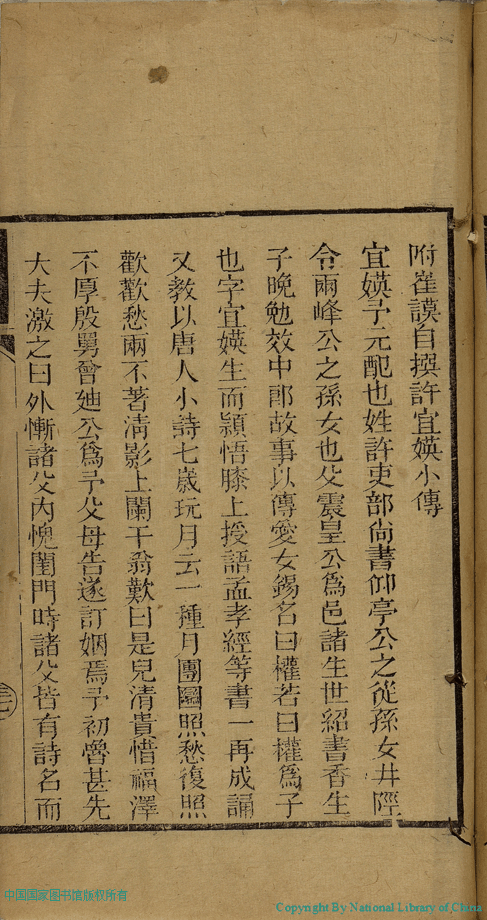 附崔謨自撰許宜媖小傳
宜媖予元配也姓許吏部尚書仰亭公之從孫女井陘
令兩峰公之孫女也父震皇公爲邑諸生世紹書香生
子晚勉效中郎故事以傳愛女錫名曰權若曰權爲子
也字宜媖生而穎悟膝上授語孟孝經等書一再成誦
又教以唐人小詩七歲玩月云一種月團圞照愁復照
歡歡愁兩不著清影上闌干翁歎曰是兒清貴惜福澤
不厚殷舅曾廸公爲予父母告遂訂姻焉予初魯甚先
大夫激之曰外慚諸父內愧閨門時諸父皆有詩名而
中国国家图书馆版权所有
Copyright By National Library of China